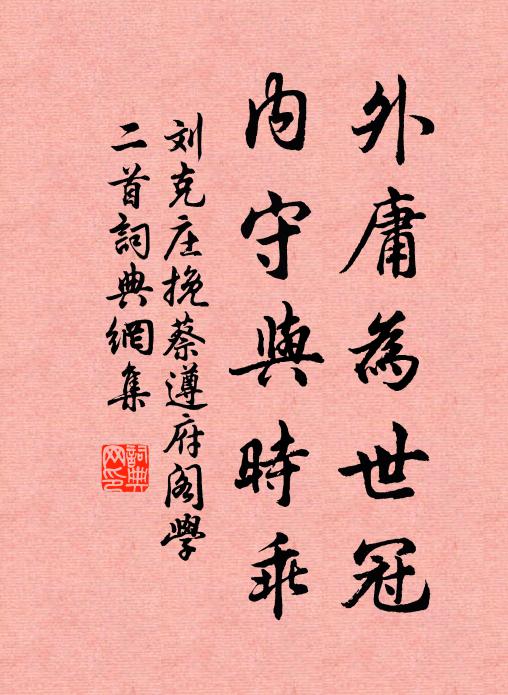 外庸為世冠
内守與時乖
刘克庄挽蔡遵府阁學
二首詞典網集
詞典网印